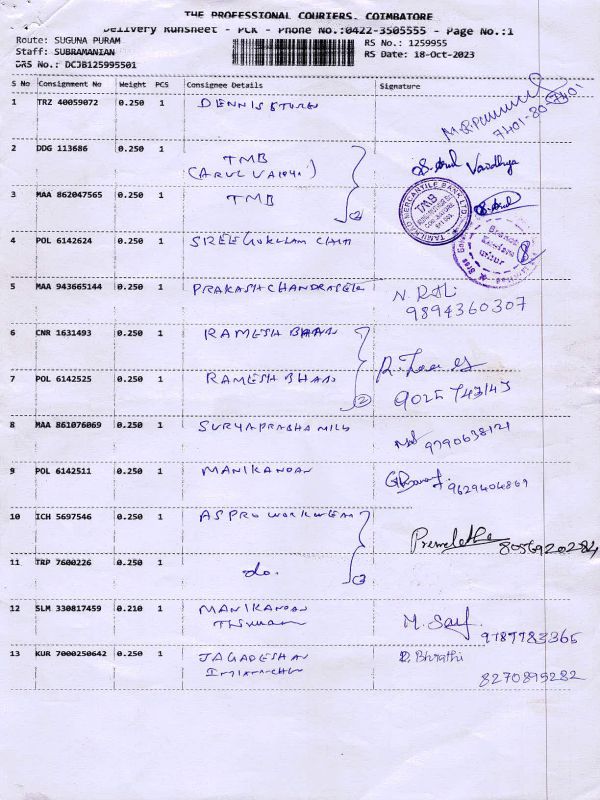 THE PROFESSIONAL COURIERS. COIMBATORE
Delivery Runsheet - PCK - Phone No.:0422-3505555 - Page No.:1
Route: SUGUNA PURAM
RS No.: 1259955
Staff: SUBRAMANIAN
RS Date: 18-Oct-2023
DRS No.: DCJB125995501
S No Consignment No Weight PCS Consignee Details Signature
1 TRZ 40059072 0.250 1
2 DDG 113686 0.250 1 TMB
Vaidhya
3 MAA 862047565 0.250 1 TMB
TAMILNAD MERCANTILE BANK LTD.
TMB
4 POL 6142624 0.250 1 SREE GOKULAM CHIT
5 MAA 943665144 0.250 1 PRAKASH CHANDRASEK
9894360307
6 CNR 1631493 0.250 1 RAMESH BHAN
7 POL 6142525 0.250 1 RAMESH BHAN
9025743143
8 MAA 861076069 0.250 1 SURYAPRABHA MILLS
9790638121
9 POL 6142511 0.250 1 MANIKANDAN
9629404869
10 ICH 5697546 0.250 1 ASPRO WORKWEAR
Premeletha 8056920284
11 TRP 7600226 0.250 1 do.
12 SLM 330817459 0.210 1 MANIKANDAN
M.
9787783365
13 KUR 7000250642 0.250 1 JAGADESHAN
D. Bhrathi
8270899282